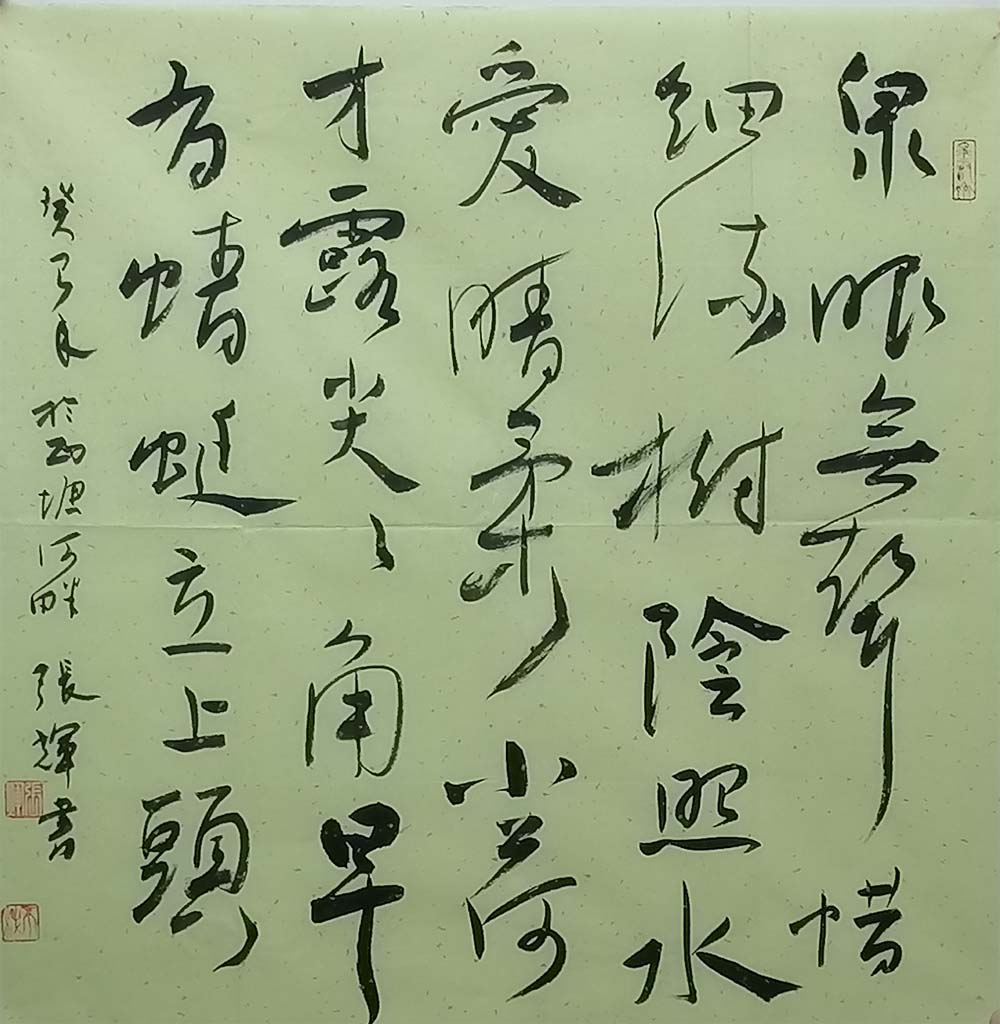 泉眼無聲惜
細流樹陰照水
愛晴柔小荷
才露尖々角早
有蜻蜓立上頭
癸年於西塘河畔 張輝書